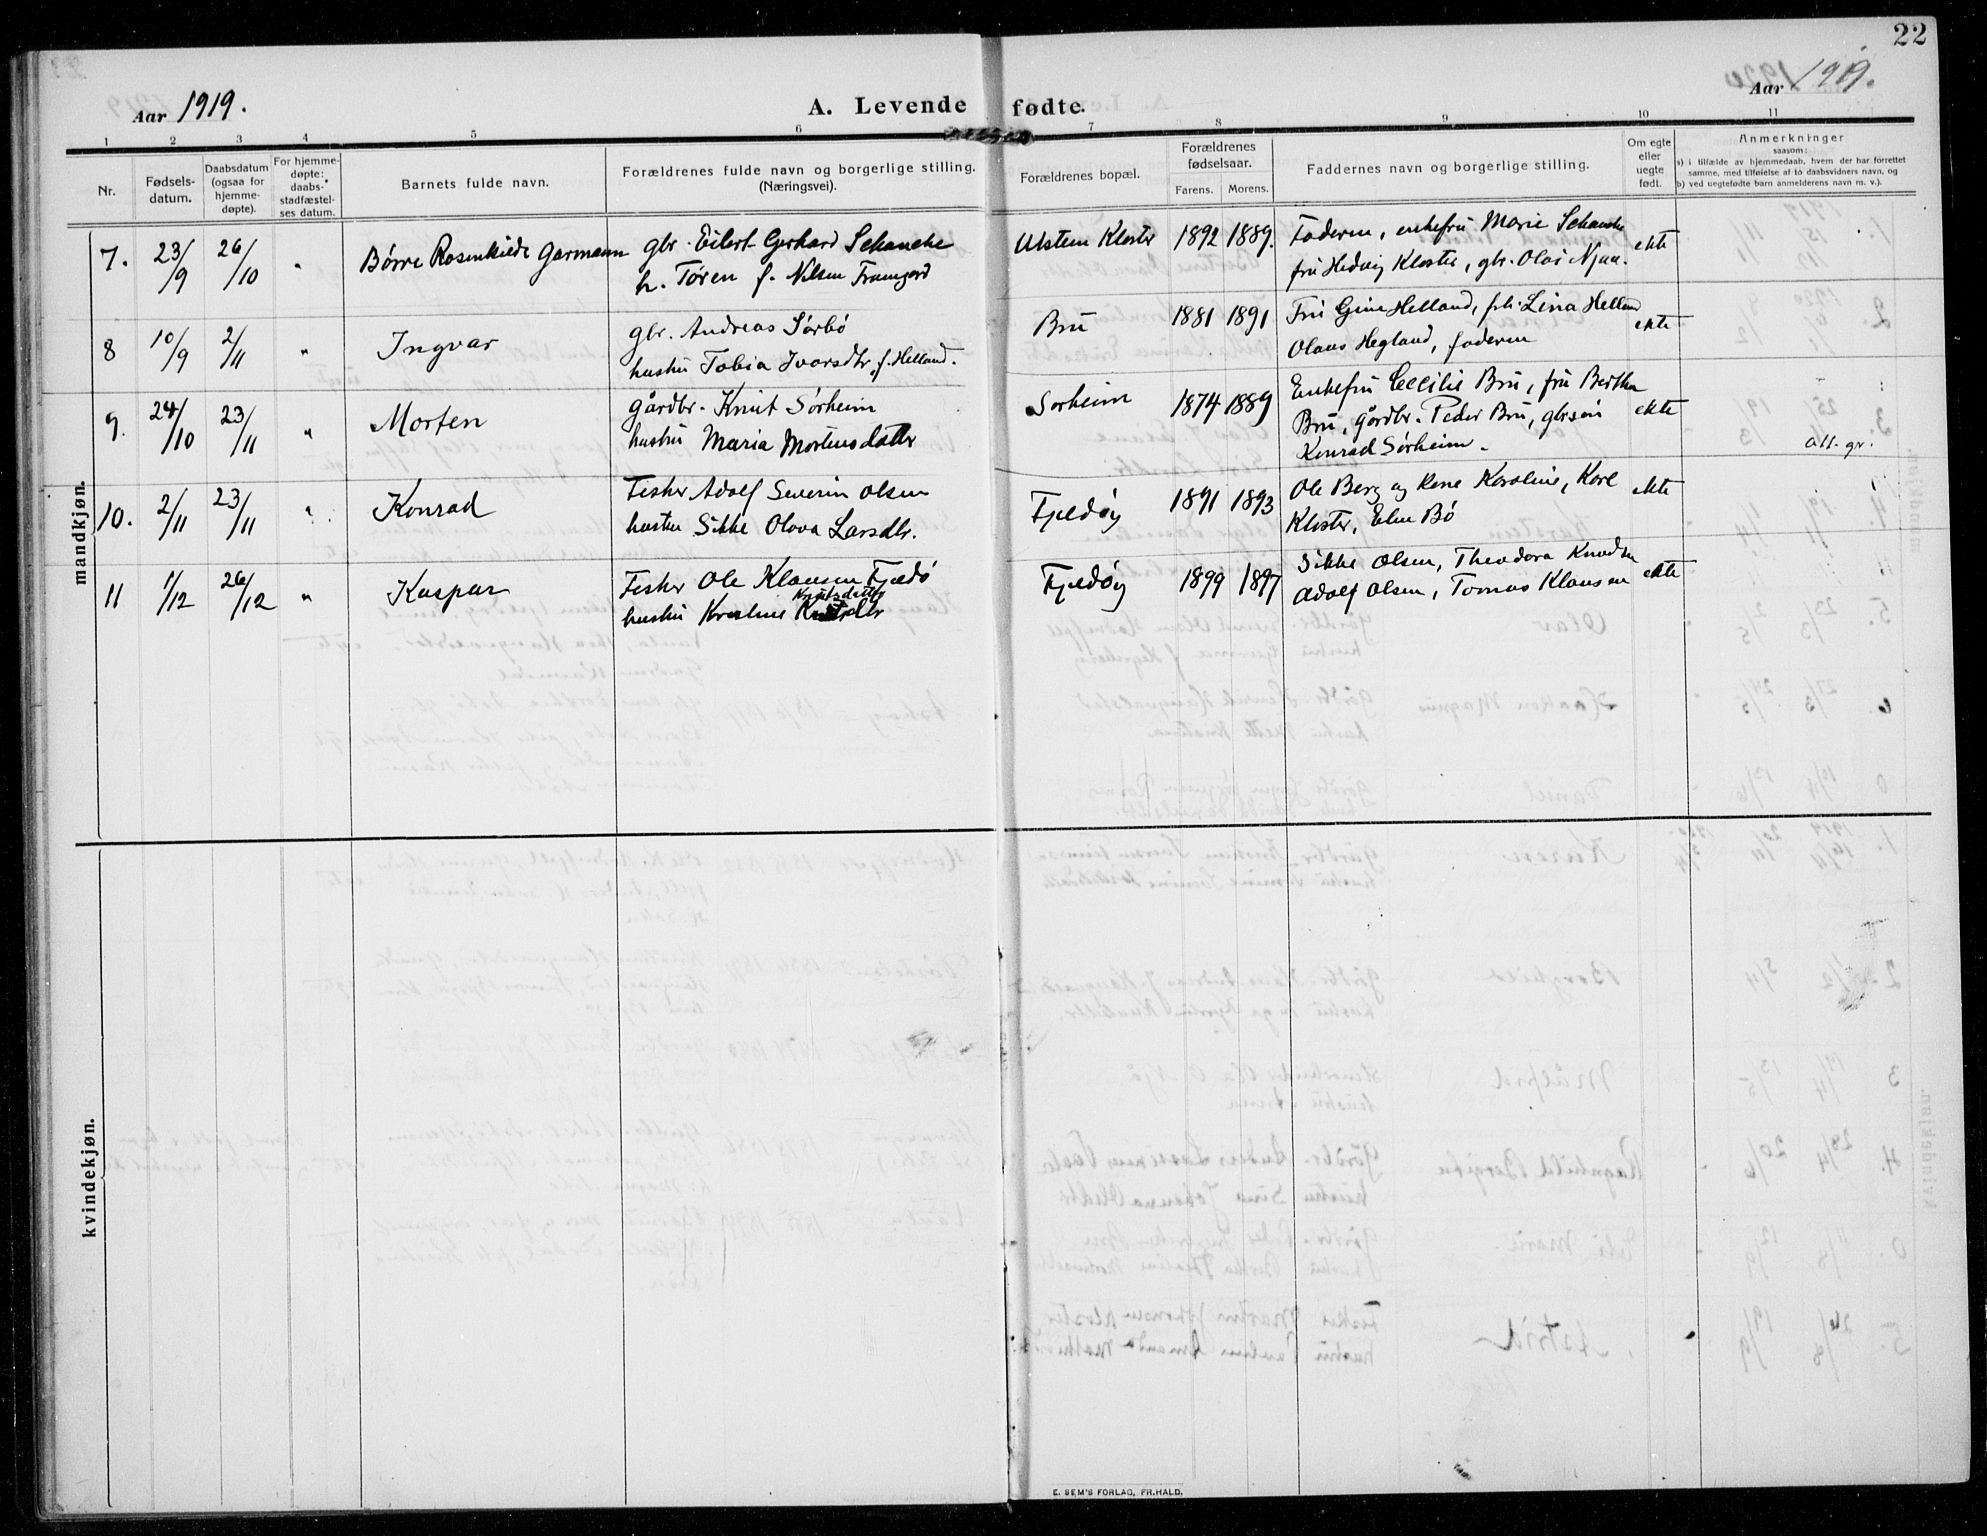 22
Aar 1919.
A. Levende fødte.
Aar 1919.
1 2 3 4 5 6 7 8 9 10 11
Nr.
Fødsels-
datum.
Daabsdatum
(ogsaa for
hjemme-
døpte).
For hjemme-
døpte:
daabs-
stadfæstel-
ses datum.
Barnets fulde navn.
Forældrenes fulde navn og borgerlige stilling.
(Næringsvei).
Forældrenes bopæl.
Forældrenes
fødselsaar.
Farens. Morens.
Faddernes navn og borgerlige stilling.
Om egte
eller
uegte
født.
Anmerkninger
saasom:
a) i tilfælde av hjemmedaab, hvem der har forrettet
samme, med tilføielse af to daabsvidners navn, og
b) ved uegtefødte barn anmelderens navn m. v.).
mandkjøn.
7. 23/9 26/10 " Børre Rosenkilde Garmann
gbr. Eilert Gerhard Schanche
h. Tøren f. Nilsen Tramgard
Utstein Kloster 1892 1889.
Faderen, enkefru Marie Schanche
fru Hedvig Kloster, gbr. Olai Njaa.
ekte
8 10/9 2/11 " Ingvar
gbr. Andreas Sørbø
hustru Tobia Ivarsdtr. f. Helland.
Bru 1881 1891
Fru Gine Helland, frk. Lina Helland
Olaus Hegland, faderen
ekte
9. 24/10 23/11 " Morten
Gårdbr. Knut Sørheim
hustru Maria Mortensdatter
Sørheim 1874 1889
Enkefru Cecilie Bru, fru Bertha
Bru, gårdbr. Peder Bru, gbrsøn
Konrad Sørheim.
ekte
att. gr.
10. 2/11 23/11 " Konrad
Fisker Adolf Severin Olsen
hustru Sikke Olava Larsdtr.
Fjeldøy 1891 1893
Ole Berg og Kone Karoline, Karl
Kloster, Elen Bø
ekte
11 1/12 26/12 " Kaspar
Fisker Ole Klausen Fjeldø
Knutsdatter
hustru Kristine
Fjeldøy 1899 1897
Sikke Olsen, Theodora Knudsen
Adolf Olsen, Tomas Klausen
ekte
kvindekjøn.
E. SEM'S FORLAG, FR.HALD.